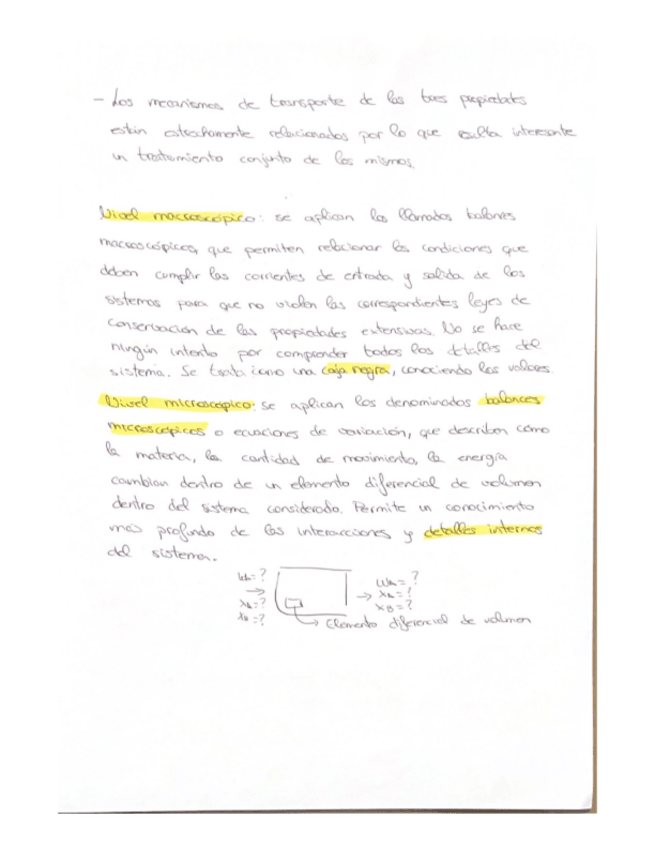 - Los mecanismos de transporte de las tres propiedades
están estrechamente relacionados por lo que resulta interesante
un tratamiento conjunto de los mismos.
Nivel macroscópico: se aplican los llamados balances
macroscópicos, que permiten relacionar las condiciones que
deben cumplir las corrientes de entrada y salida de los
sistemas para que no violen las correspondientes leyes de
conservación de las propiedades extensivas. No se hace
ningún intento por comprender todos los detalles del
sistema. Se trata como una caja negra, conociendo los valores.
Nivel microscópico: se aplican los denominados balances
microscópicos o ecuaciones de variación, que describen como
la materia, la cantidad de movimiento, la energía
cambian dentro de un elemento diferencial de volumen
dentro del sistema considerado. Permite un conocimiento
más profundo de las interacciones y detalles internos
del sistema.
WA=? WA=?
→ → XA=?
XA=? XB=?
XB=?
→ Elemento diferencial de volumen